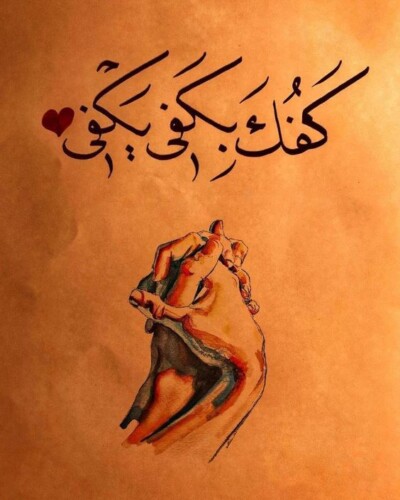 كَفُكَ بِكَفِى يَكْفِى